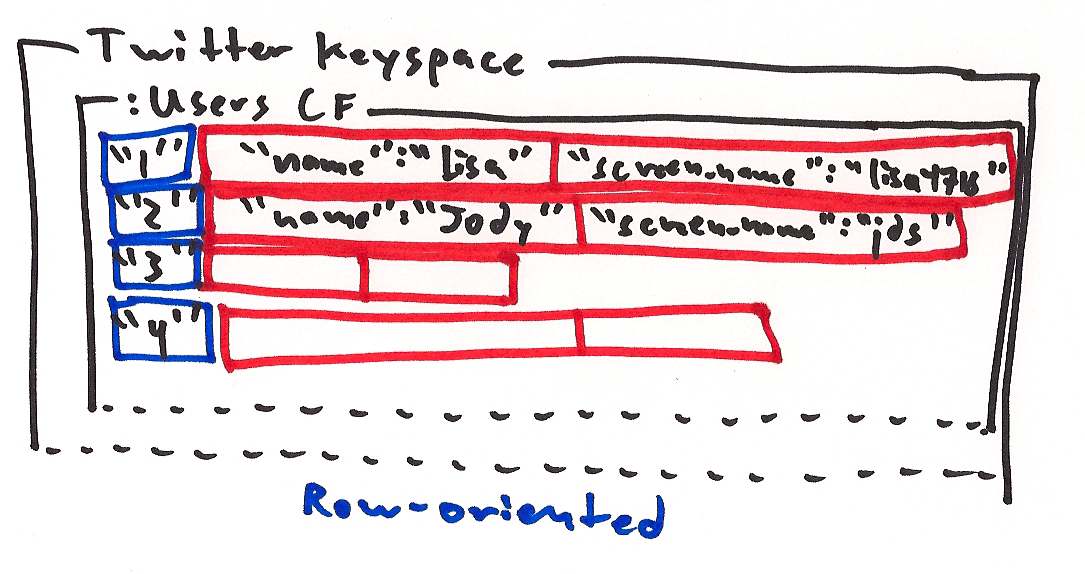 Twitter Keyspace
:Users CF
"1" "name":"lisa" "screen_name":"lisa4718"
"2" "name":"Jody" "screen_name":"jds"
"3"
"4"
Row-oriented